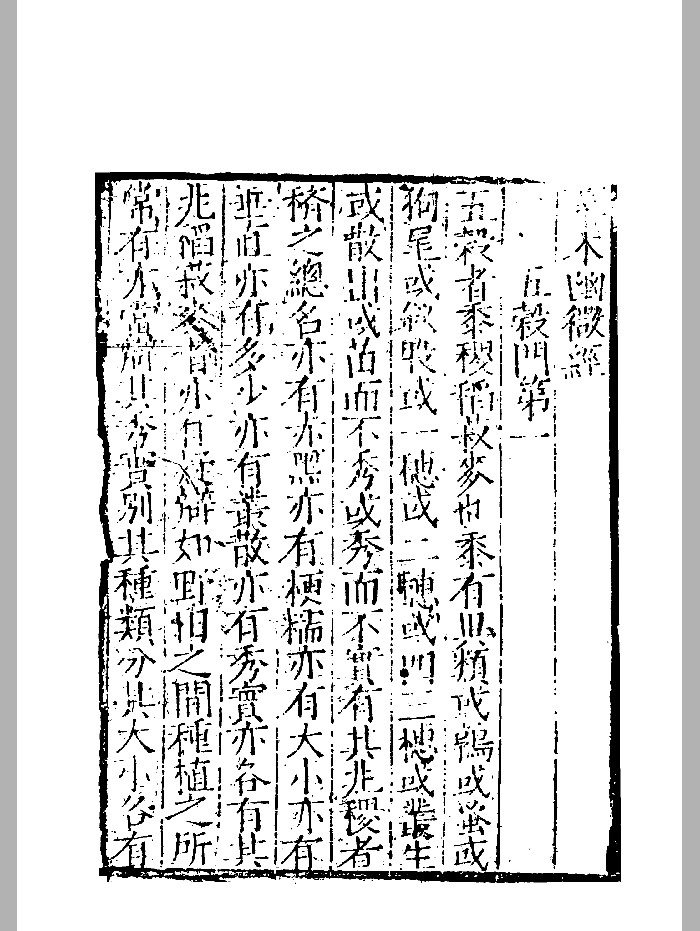 木幽微經
五穀門第一
五穀者黍稷稻菽麥也黍有四類或鴨或蚤或
狗尾或或一穗或二穗或四三穗或叢生
或散出或苗而不秀或秀而不實有其兆稷者
穄之總名亦有赤黑亦有粳糯亦有大小亦有
垂直亦有多少亦有叢散亦有秀實亦各有其
兆稻菽麥者亦有如野田之間種植之所
常有亦當其秀實別其種類分其大小各有